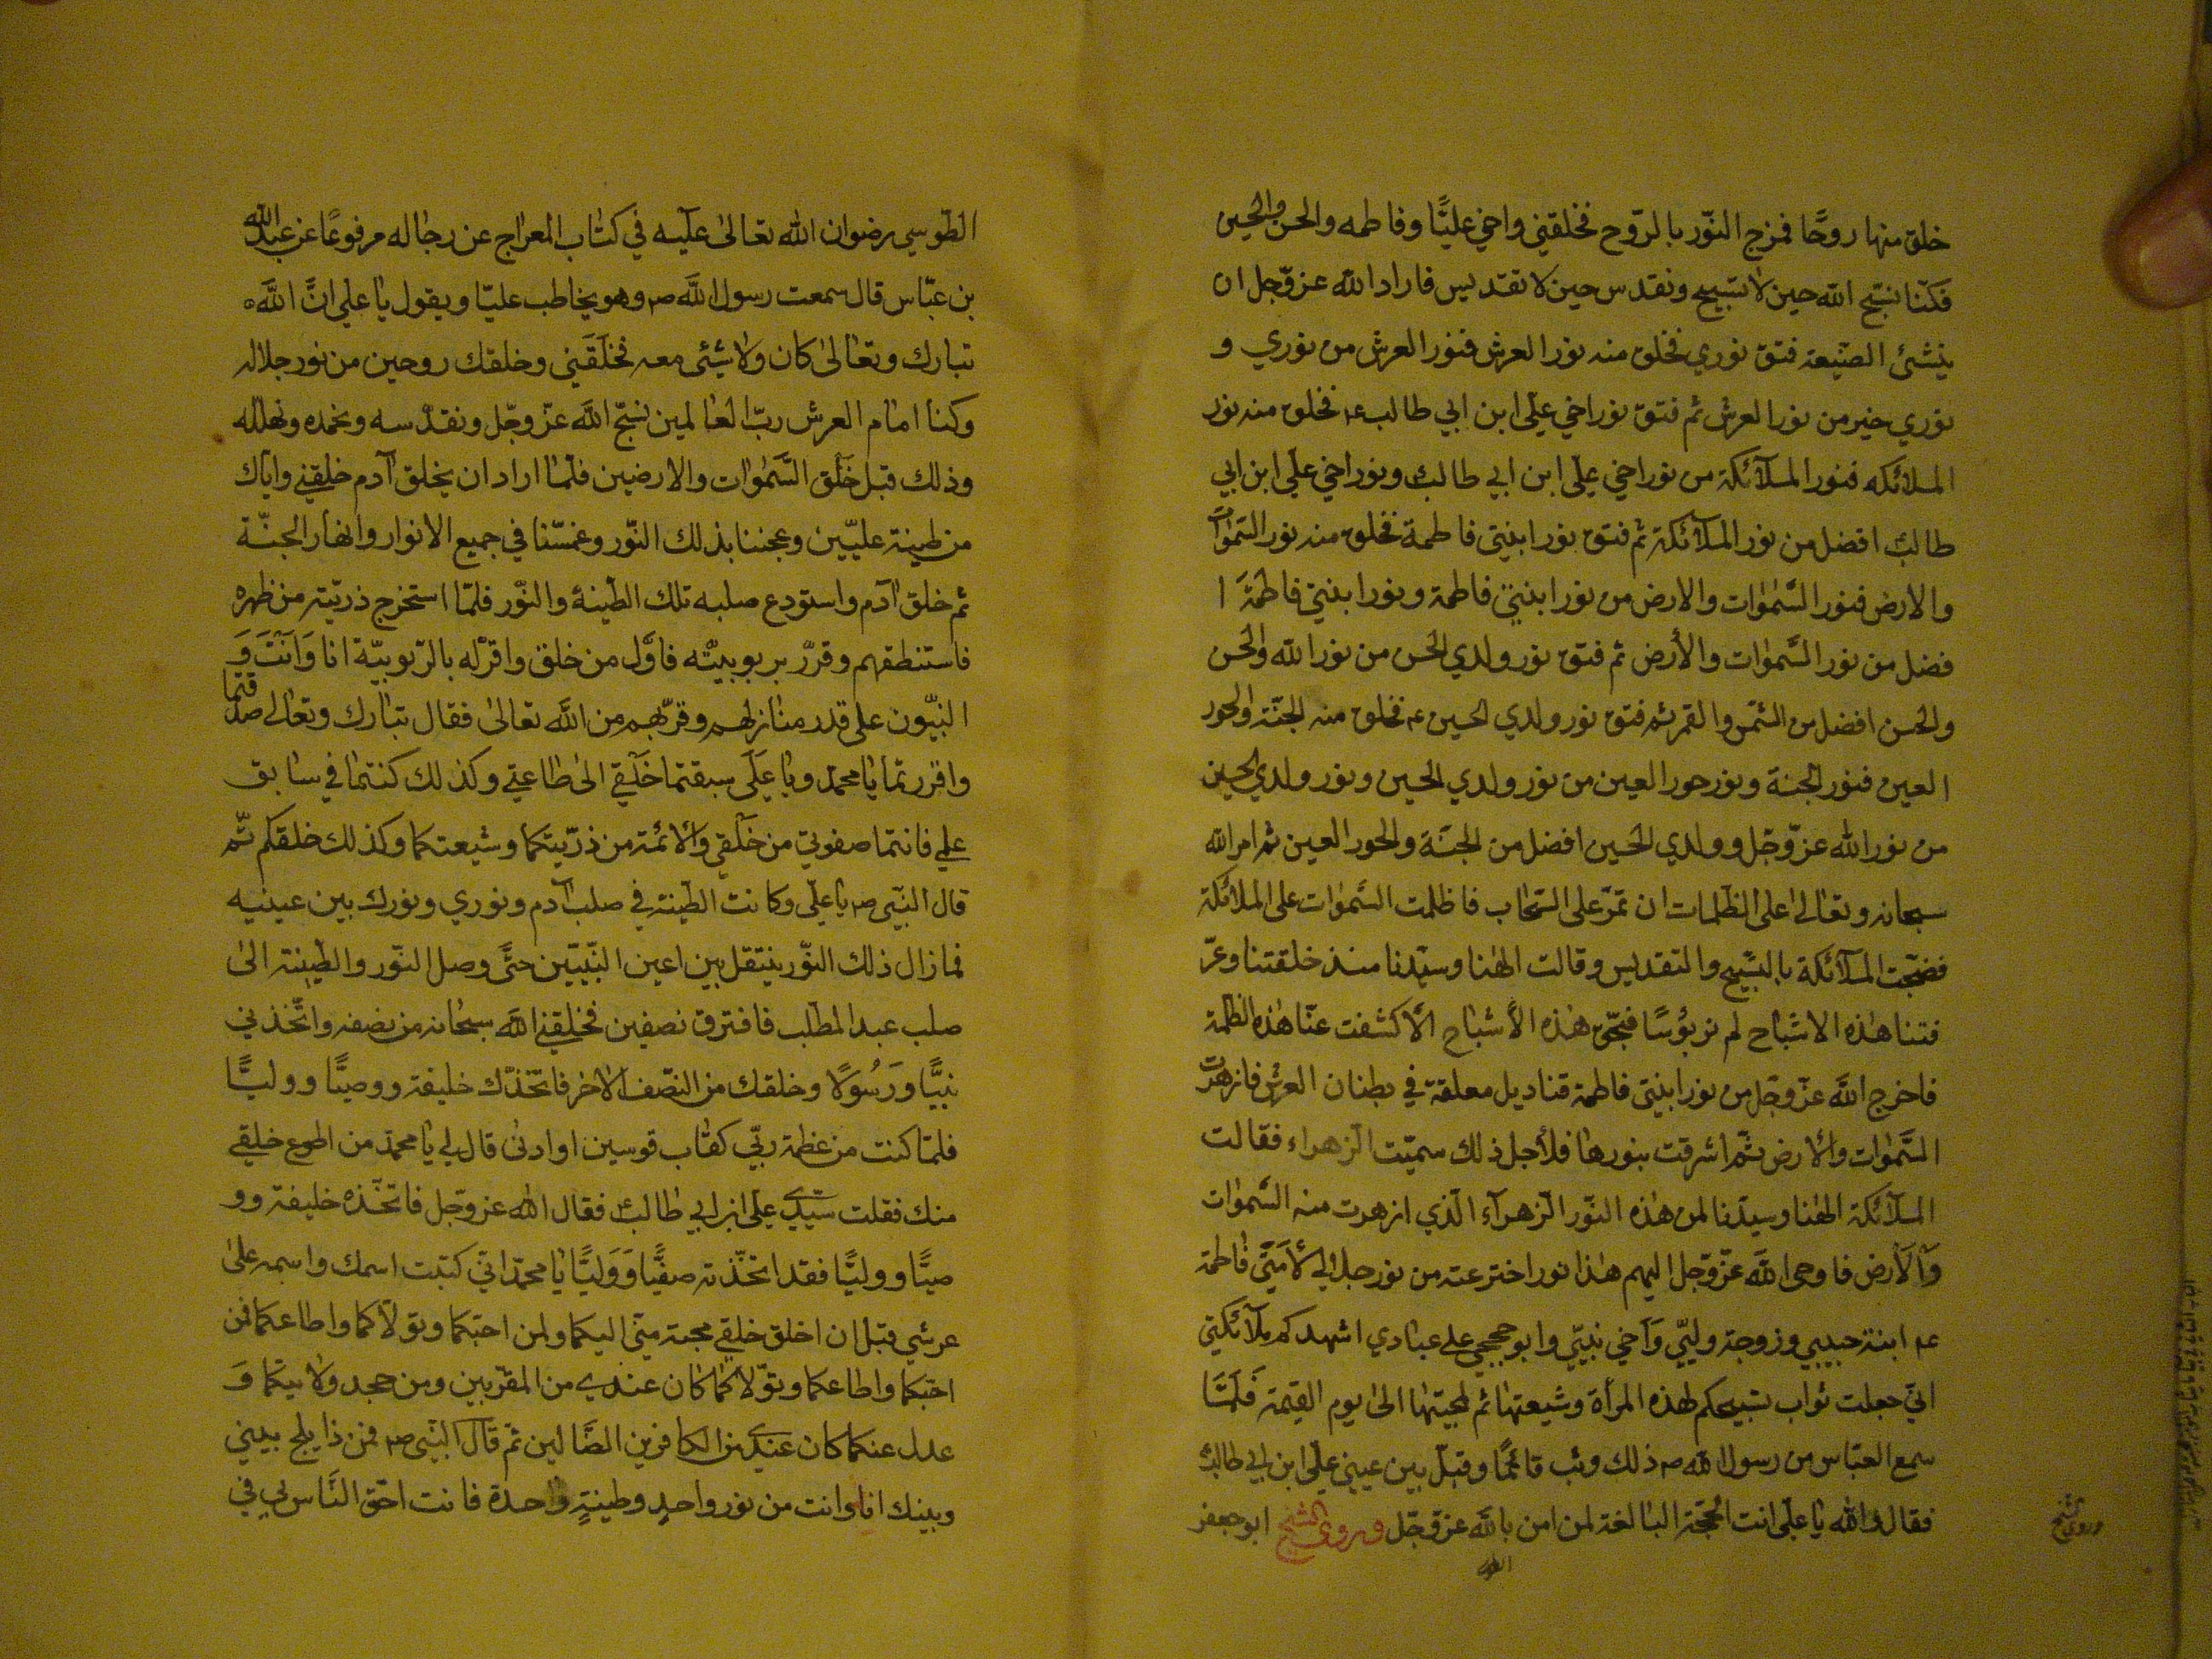 خلق منها روحًا فمزج النّور بالرّوح فخلقني واخي عليًّا وفاطمه والحسن والحسين
فكنّا نسبّح الله حين لا تسبيح ونقدس حين لا تقديس فاراد الله عزوّجل ان
ينشئ الصّنيعة فتق نوري فخلق منه نور العرش فنور العرش من نوري و
نوري خير من نور العرش ثم فتق نور اخي عليّ ابن ابي طالب ع فخلق منه نور
الملائكه فنور الملآئكة من نور اخي عليّ ابن ابي طالب ونور اخي علي ابن ابي
طالب افضل من نور الملآئكة ثم فتق نور ابنتي فاطمة فخلق منه نور السّمٰوات
والارض فنور السّمٰوات والارض من نور ابنتي فاطمة ونور ابنتي فاطمَة ا
فضل من نور السّمٰوات والأرض ثم فتق نور ولدي الحسن من نور الله والحسن
والحسن افضل من الشمس والقمر ثم فتق نور ولدي الحسين ع فخلق منه الجنّة والحور
العين فنور الجنة ونور حور العين من نور ولدي الحسين ونور ولدي الحسين
من نور الله عزّوجّل وولدي الحسين افضل من الجنّة والحور العين ثم امر الله
سبحانه وتعالىٰ على الظّلمات ان تمرّ على السّحاب فاظلمت السّمٰوات على الملائكة
فضجّت الملآئكة بالتسّبيح والتقديس وقالت الٰهنا وسيّدنا منذ خلقتنا وعرّ
فتنا هٰذه الاشباح لم نر بؤسًا فبحّق هٰذه الأشباح الّا كشفت عنّا هٰذه الظلمة
فاخرج الله عزّوجّل من نور ابنتي فاطمة قناديل معلقة في بطنان العرش فازهرت
السّمٰوات والأرض ثمّ اشرقت بنورها فلأجل ذلك سميّت الزهراء فقالت
الملآئكة الٰهنا وسيدّنا لمن هٰذه النّور الزهرآء الّذي ازهرت منه السّمٰوات
وَالأرض فاوحى الله عزّوّجل اليهم هٰذا نور اخترعته من نور جلالي لأمَتي فاطمة
ع ابنة حبيبي وزوجة وليّي وَأخي نبيّي وابو حججي على عبادي اشهدكم ملآئكتي
انيّ جعلت ثواب تسبيحكم لهذه المرأة وشيعتها ثم لمحبيّها الىٰ يوم القيٰمة فَلَمّا
سمع العبّاس من رسول الله ص ذلك وثب قائمًا وقبّل بين عيني عليّ ابن ابي طالب
فقال والله يا عليّ انت الحجّة البالغة لمن امن بالله عزوّجّل وروى الشيخ ابوجعفر
الطو
وروى الشيخ
الطّوسي رضوان الله تعالىٰ عليه في كتاب المعراج عن رجاله مرفوعًا عن عبد الله
بن عبّاس قال سمعت رسول الله ص وهو يخاطب عليّا ويقول يا علي انَّ الله
تبارك وتعالىٰ كان ولا شيئى معه فخلقَني وخلقك روحين من نور جلاله
وكنا امام العرش ربّ العٰالمين نسبّح الله عزّوجّل ونقدّسه ونحمده ونهلله
وذلك قبل خلق السَّمٰوات والارضين فلمّا اراد ان يخلق آدم خلقني واياك
من طينة عليّين وعجننا بذلك النّور وغمسّنا في جميع الانوار وانهار الجنّة
ثم خلق اٰدم واستودع صلبه تلك الطّينة والنّور فلمّا استخرج ذريّته من ظهره
فاستنطقهم وقرّر بربوبيتّه فاوّل من خلق واقرّ له بالرّبوبيّة انا وَاَنتَ وَ
النبيّون على قدر منازلهم وقربّهم من الله تعالىٰ فقال تبارك وتعالىٰ صدقتما
واقررتما يا محمّد ويا عَلَي سبقتما خَلقي الىٰ طاعتي وكذلك كنتما في سابق
علمي فانتما صفوتي من خَلقي والأئمّة من ذرّيتكما وشيعتكما وكذلك خلقكم ثمّ
قال النّبي ص يا عليّ وكانت الطّينة في صلب اٰدم ونوري ونورك بين عينيه
فمازال ذلك النّور ينتقل بين اعين النّبيّين حتَّى وصل النّور والطّينة الىٰ
صلب عبد المطلب فافترق نصفين فخلقني الله سبحانه من نصفه واتّخذني
نبيًّا ورَسُولًا وخلقك من النصّف الاٰخر فاتخّذك خليفة ووصيًّا ووليًّا
فلمّا كنت من عظمة ربّي كقاب قوسين او ادنى قال لي يا محمّد من اطوع خلقي
منك فقلت سيّدي علي ابن ابي طالب فقال الله عزوّجل فاتخّذه خليفة وو
صيًّا ووليًّا فقد اتخّذته صفيًّا وَوَليًّا يا محمّد انيّ كتبت اسمك واسمه علىٰ
عرشي قبل ان اخلق خلقي محبة منّي اليكما ولمن احبّكما وتولّاكما واطاعكما فمن
احبّكما واطاعكما وتوّلاكما كان عندي من المقرّبين ومن جحد ولايتكما وَ
عدل عنكما كان عندي من الكافرين الضّالين ثم قال النّبي ص فمن ذا يلج بيني
وبينك انا وانت من نور واحدٍ وطينةٍ واحدة فانت احقّ النَّاس لي في